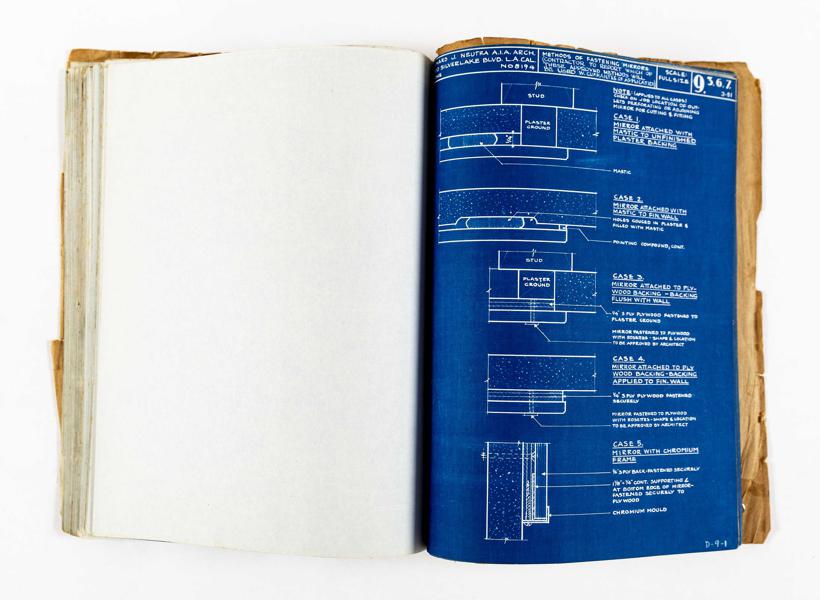 J. NEUTRA A.I.A. ARCH.
SILVERLAKE BLVD. L.A. CAL.
NO 8194
METHODS OF FASTENING MIRRORS
CONTRACTOR TO REPORT WHICH OF
THESE APPROVED METHODS WILL
BE USED W. GUARANTEE OF APPLICATION
SCALE:
FULL SIZE
9.3.6.7.
3-51
NOTE: (APPLIES TO ALL CASES)
CHECK ON JOB LOCATION OF OUT-
LETS PERFORATING OR ADJOINING
MIRROR FOR CUTTING & FITTING
STUD
PLASTER
GROUND
CASE 1.
MIRROR ATTACHED WITH
MASTIC TO UNFINISHED
PLASTER BACKING
MASTIC
CASE 2.
MIRROR ATTACHED WITH
MASTIC TO FIN. WALL
HOLES GOUGED IN PLASTER &
FILLED WITH MASTIC
POINTING COMPOUND, CONT.
STUD
PLASTER
GROUND
CASE 3.
MIRROR ATTACHED TO PLY-
WOOD BACKING - BACKING
FLUSH WITH WALL
3 PLY PLYWOOD FASTENED TO
PLASTER GROUND
MIRROR FASTENED TO PLYWOOD
WITH ROSETTES - SHAPE & LOCATION
TO BE APPROVED BY ARCHITECT
CASE 4.
MIRROR ATTACHED TO PLY
WOOD BACKING - BACKING
APPLIED TO FIN. WALL
3 PLY PLYWOOD FASTENED
SECURELY
MIRROR FASTENED TO PLYWOOD
WITH ROSETTES - SHAPE & LOCATION
TO BE APPROVED BY ARCHITECT
CASE 5.
MIRROR WITH CHROMIUM
FRAME
3 PLY BACK-FASTENED SECURELY
CONT. SUPPORTING L
AT BOTTOM EDGE OF MIRROR-
FASTENED SECURELY TO
PLYWOOD
CHROMIUM MOULD
D-9-1